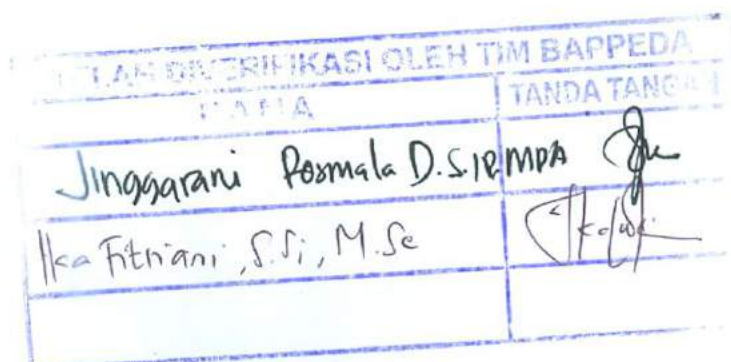 TELAH DIVERIFIKASI OLEH TIM BAPPEDA
NAMA TANDA TANGAN
Jinggarani Posmala D.S.IP, MPA
Ika Fitriani, S.Si, M.Sc